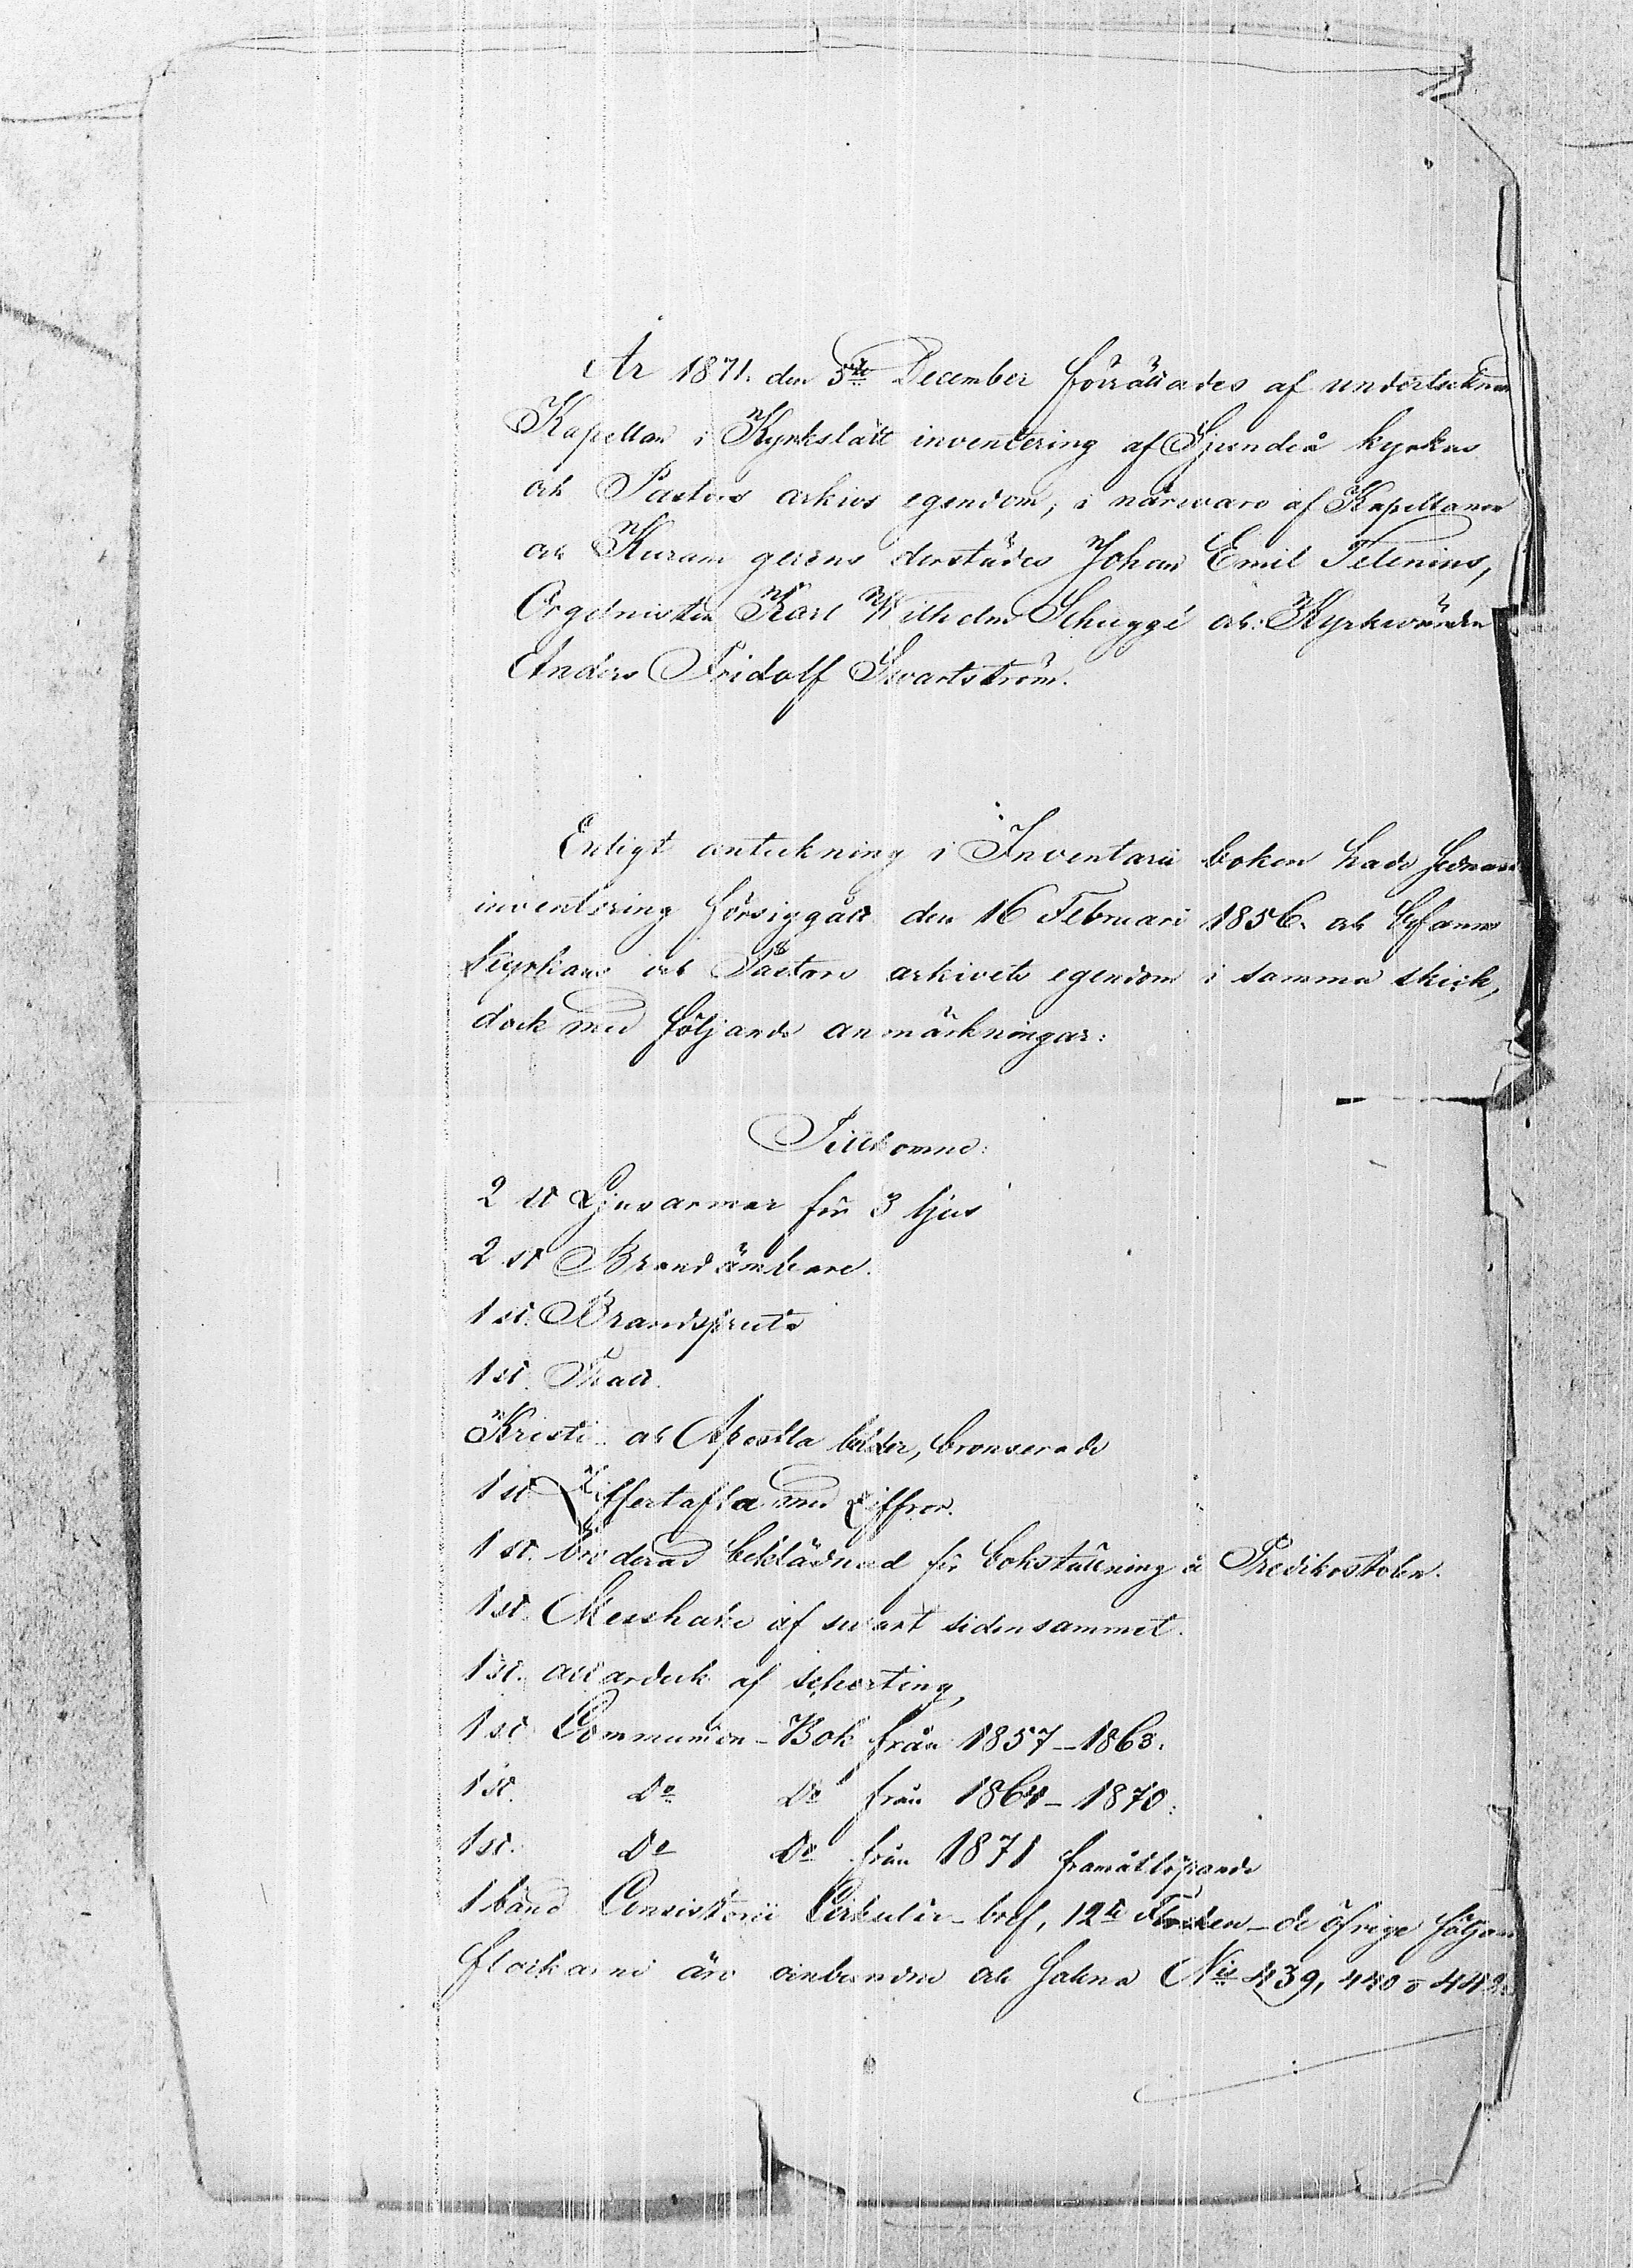 År 1871. den 5te December förrättades af undertecknad
Kapellan i Kyrkslätt inventering af Sjundeå kyrkas
och Pastors arkivs egendom, i närwaro af Kapellanen
och Kuram gerens derstädes Johan Emil Telenius,
Orgelnisten Karl Wilhelm Schuggé och Kyrkwärden
Anders Fridolf Swartström.
Enligt anteckning i Inventarii boken hade sednaste
inventering försiggått den 16 Februari 1856. och befanns
kyrkans och Pastors arkivets egendom i samma skick,
dock med följande anmärkningar:
Tillkomne:
2 st Ljusarmar för 3 ljus
2 st Brandämbare.
1 st. Brandspruta
1 st.
Kristi och Apostla bilder, bronserade
1 st Ziffertafla med Ziffror.
1 st. broderad beklädnad för bokställning å Predikostolen.
1 st. Messhake af swart sidensammet.
1 st. altarduk af schorting,
1 st Communion-Bok från 1857-1863.
1 st. Do Do från 1864-1870.
1 st. Do Do från 1871 framåtlöpande
1 band Consistorii Cirkulär-bref, 12te Flocken - de öfrige följande
flockarne äro oinbundna och sakna No 439, 440 o 442.